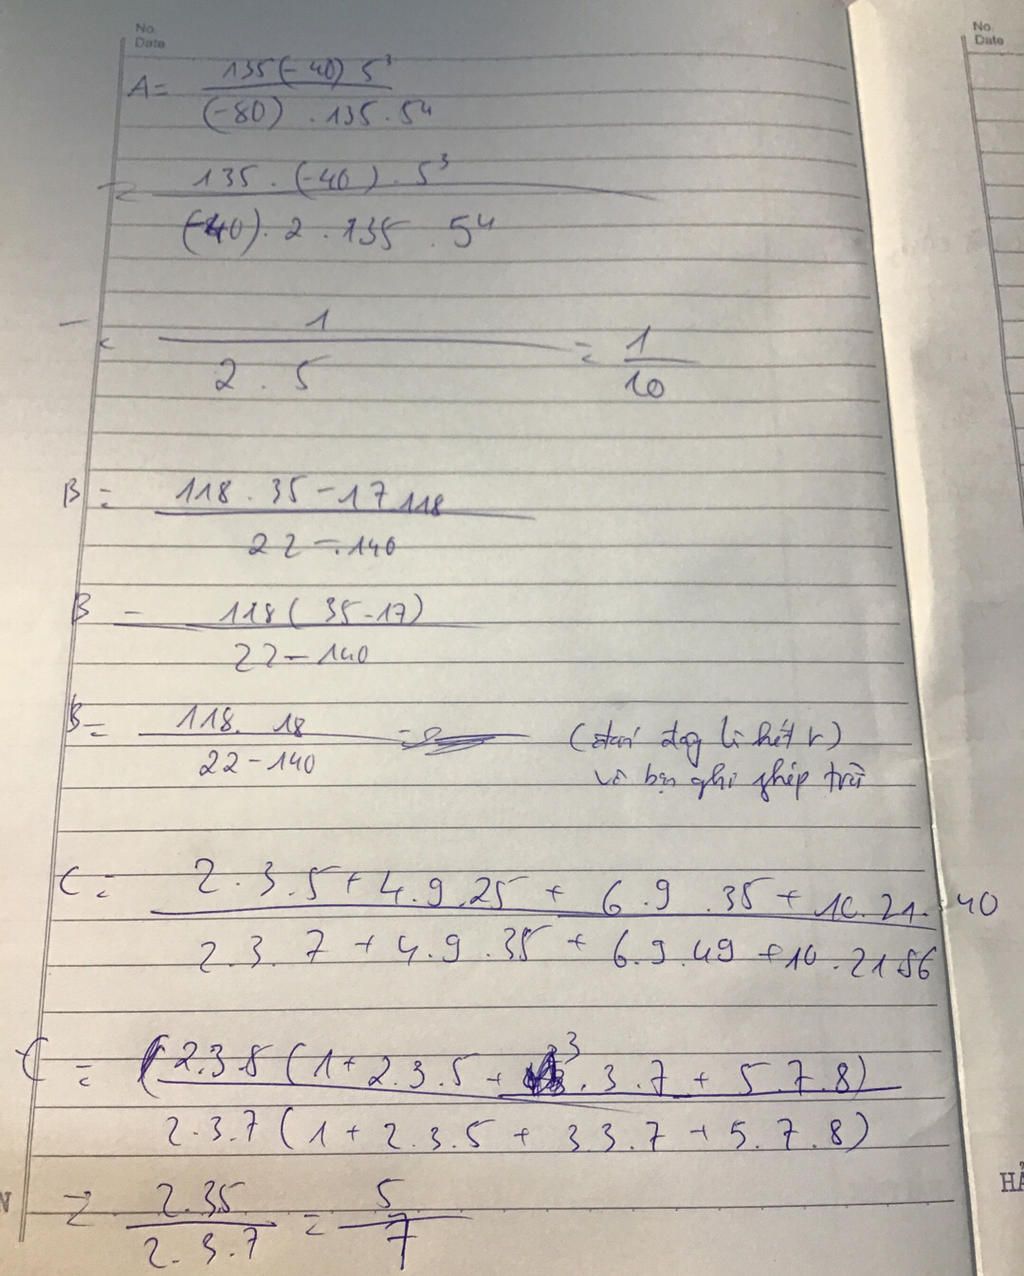 No.
Date
No.
Date
A= 135(-40) 5³
(-80) . 135 . 5⁴
= 135 . (-40) . 5³
(-40) . 2 . 135 . 5⁴
1
2 . 5
= 1
10
B = 118 . 35 - 17 118
22 - 140
B = 118 ( 35 - 17)
22 - 140
B = 118 . 18
22 - 140
lì hết r)
vì bạn ghi ghép trừ
C = 2 . 3 . 5 + 4 . 9 . 25 + 6 . 9 . 35 + 10 . 21 . 40
2 . 3 . 7 + 4 . 9 . 35 + 6 . 9 . 49 + 10 . 21 56
C = 2 . 3 . 5 ( 1 + 2 . 3 . 5 + 3 . 3 . 7 + 5 . 7 . 8)
2 . 3 . 7 ( 1 + 2 . 3 . 5 + 3 3 . 7 + 5 . 7 . 8)
= 2 . 3 5
2 . 3 . 7
= 5
7
N
HẢ